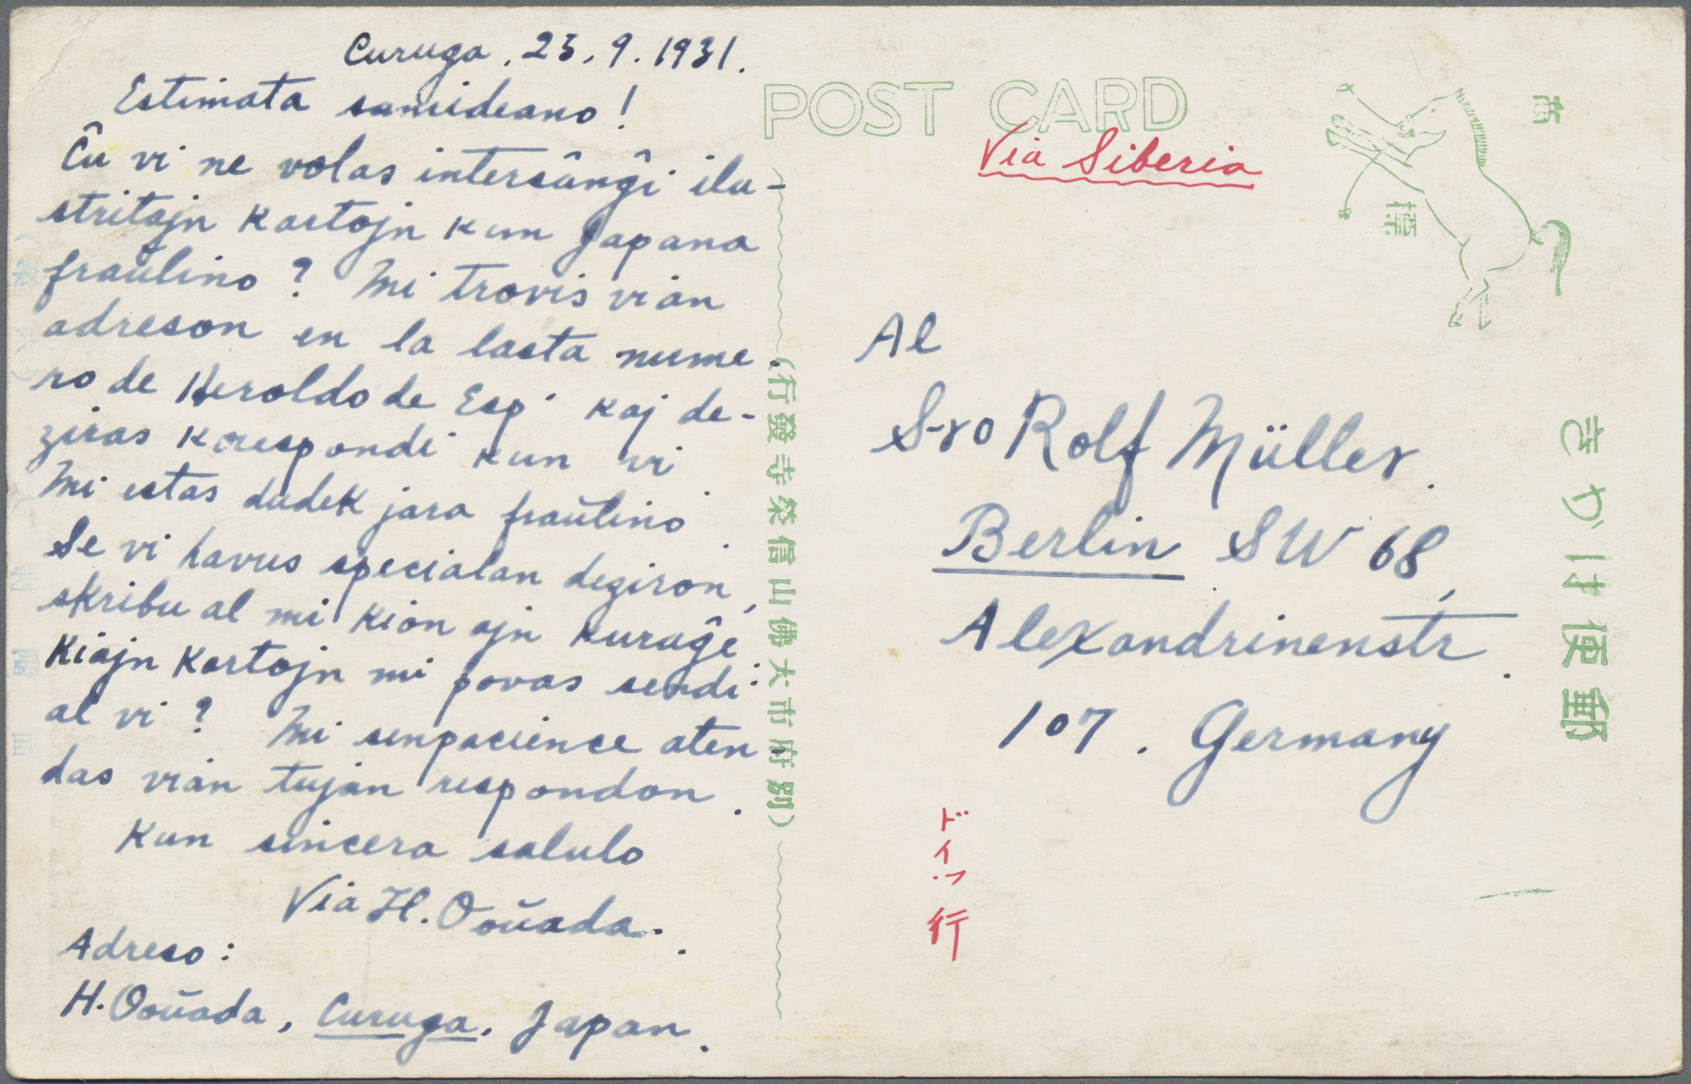 Curuga, 23, 9. 1931.
Estimata samideano!
Ĉu vi ne volas interŝânĝi ilu-
stritajn kartojn kun Japana
fraŭlino? Mi trovis vian
adreson en la lasta nume
ro de Heroldo de Esp' kaj de-
ziras korespondi kun vi.
Mi estas dudek jara fraŭlino.
Se vi havus specialan deziron,
skribu al mi kion ajn kuraĝe.
Kiajn kartojn mi povas sendi
al vi? Mi senpacience aten
das vian tujan respondon.
Kun sincera saluto
Via H. Ooŭada.
Adreso:
H. Ooŭada, Curuga, Japan.
POST CARD
Via Siberia
商
標
Al
S-ro Rolf Müller.
Berlin SW 68,
Alexandrinenstr.
107. Germany
ドイツ行
(行發寺榮信山佛大市府別)
きかは便郵